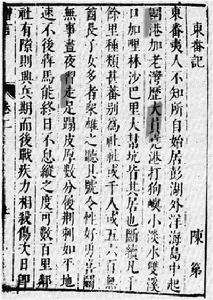 東番記
陳第
東番夷人不知所自始居彭湖外洋海島中起
魍港加老灣歷大員堯港打狗嶼小淡水雙溪
口加哩林沙巴里大幫坑皆其居也斷續凡千
餘里種類甚蕃別為社社或千人或五六百無
酋長子女多者衆雄之聽其號令性好勇喜鬥
無事晝夜習走足蹋皮厚數分履荊刺如平地
速不後犇馬能終日不息縱之度可數百里鄰
社有隙則興兵期而後戰疾力相殺傷次日即